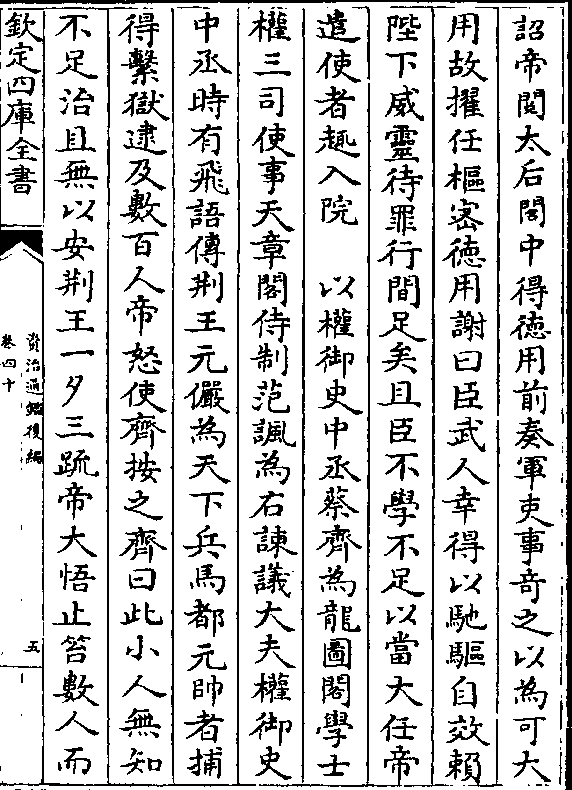 詔帝閲太后閤中得徳用前奏軍吏事竒之以為可大
用故擢任樞宻徳用謝曰臣武人幸得以馳驅自效賴
陛下威靈待罪行間足矣且臣不學不足以當大任帝
遣使者趣入院　以權御史中丞蔡齊為龍圖閣學士
權三司使事天章閣侍制范諷為右諫議大夫權御史
中丞時有飛語傳荆王元儼為天下兵馬都元帥者捕
得繫獄逮及數百人帝怒使齊按之齊曰此小人無知
不足治且無以安荆王一夕三疏帝大悟止笞數人而
欽定四庫全書
資治通鑑後編
卷四十
五